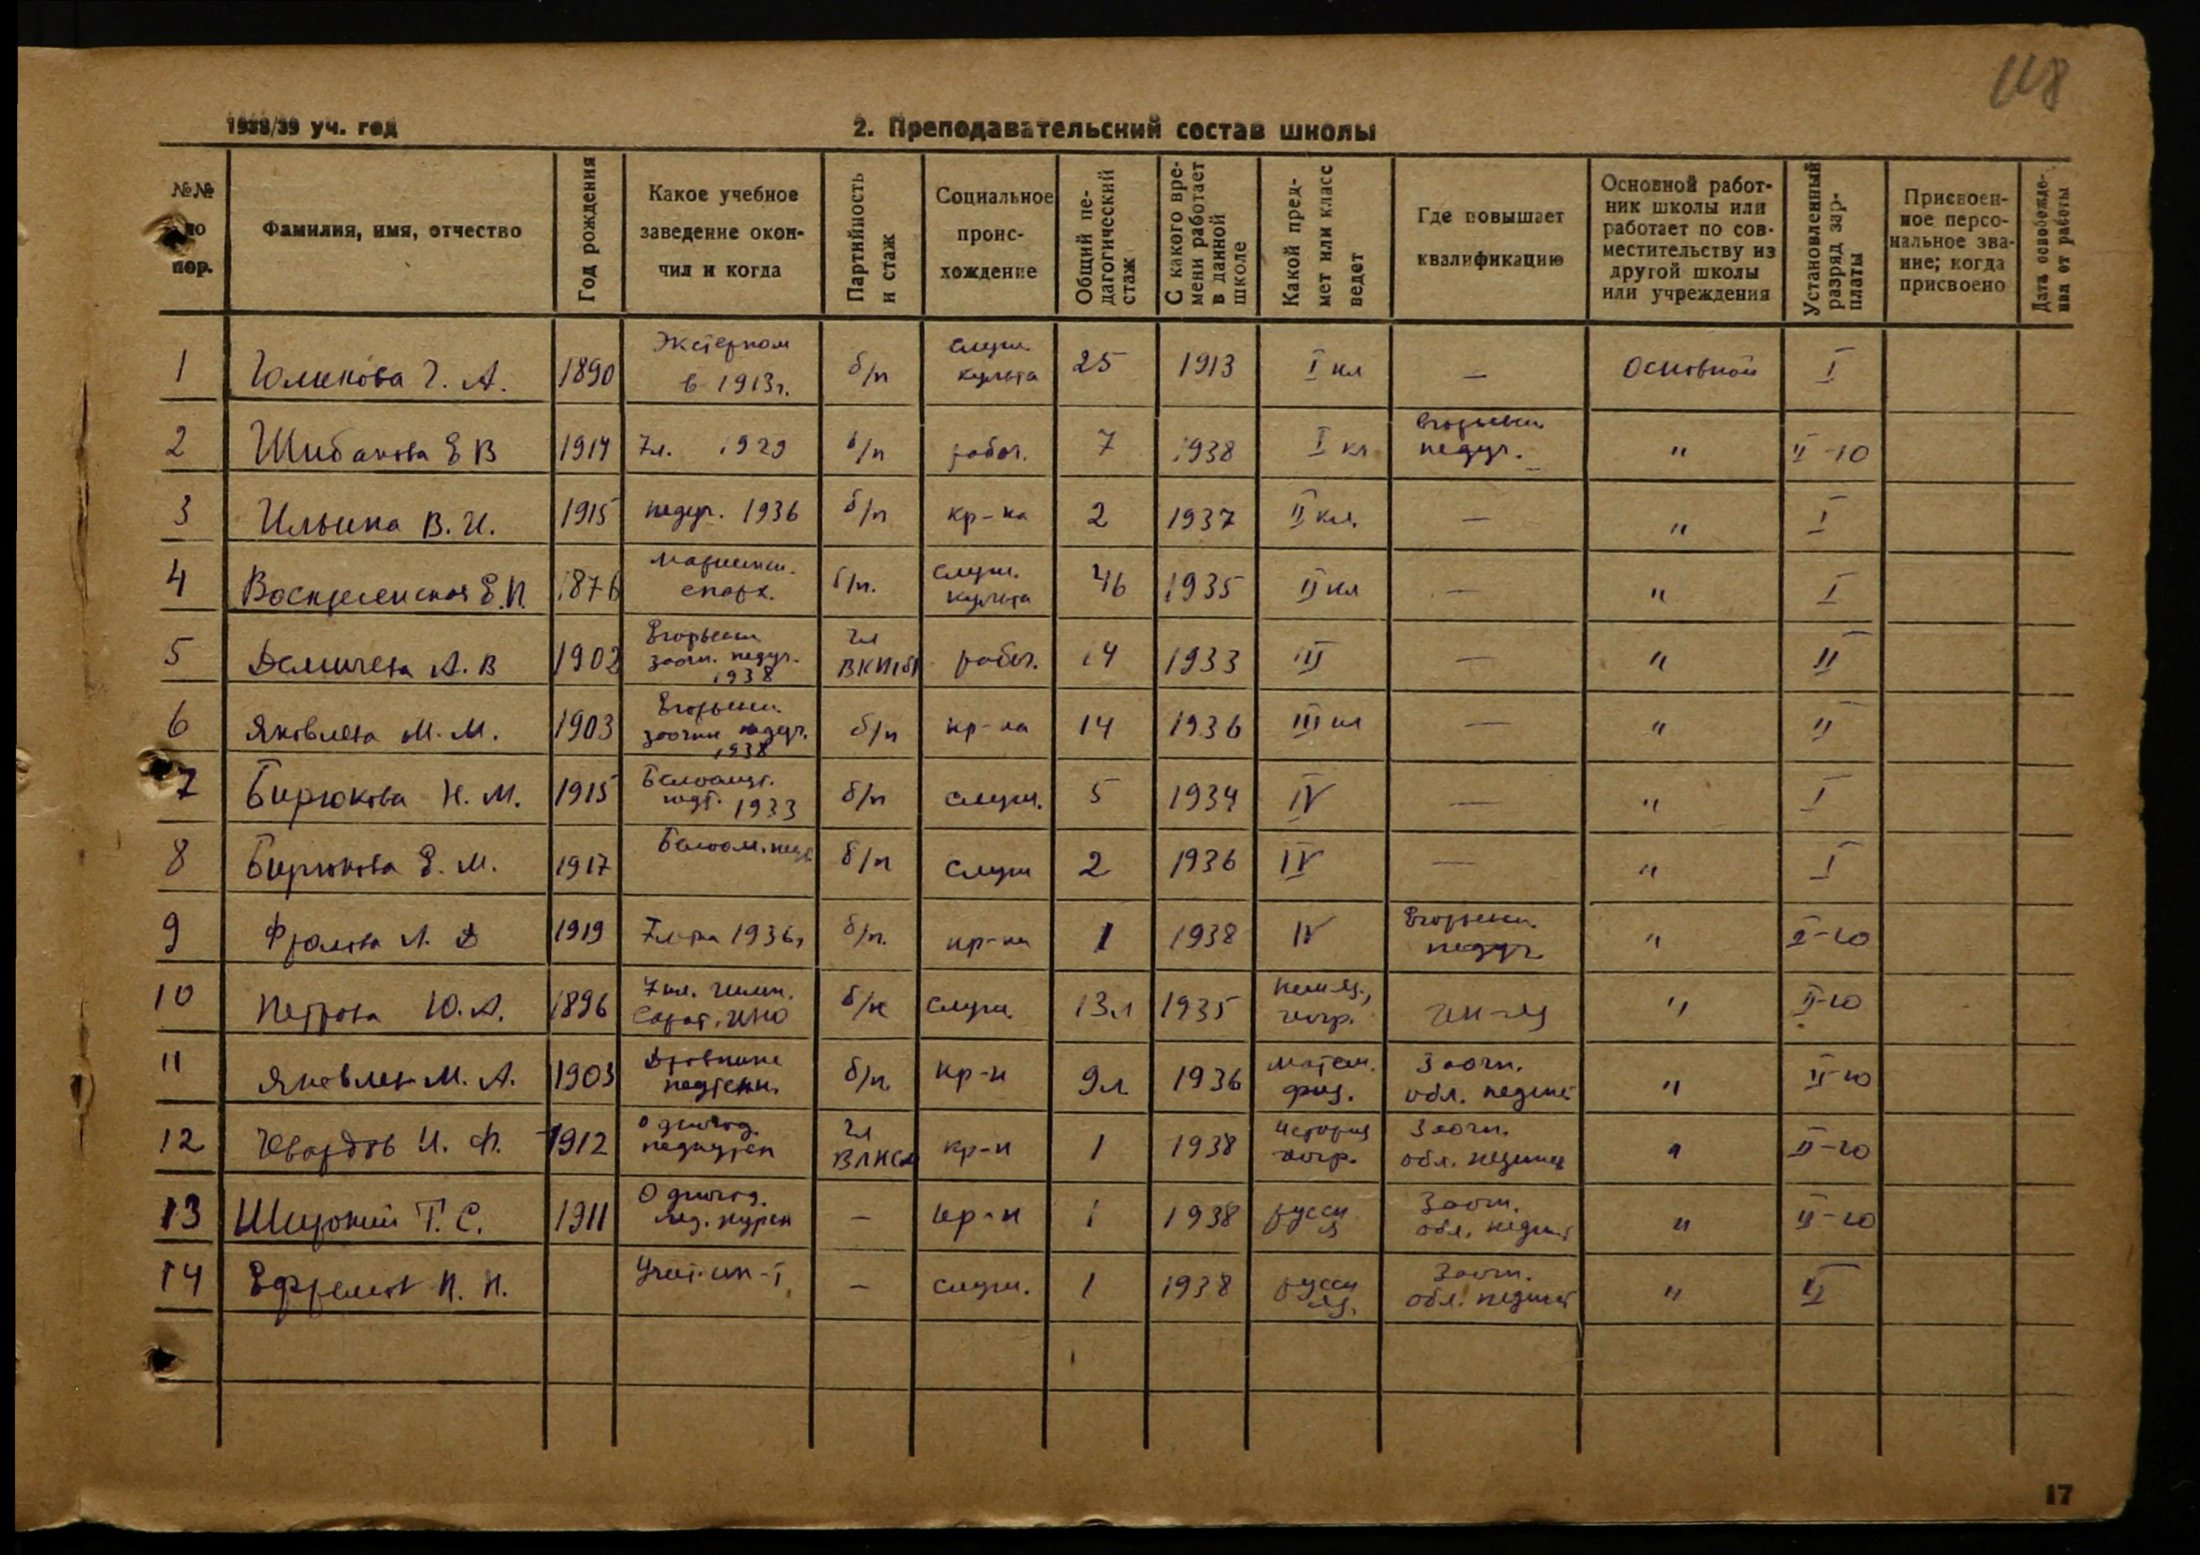 118
1938/39 уч. год
2. Преподавательский состав школы
№№ по пор.
Фамилия, имя, отчество
Год рождения
Какое учебное заведение окончил и когда
Партийность и стаж
Социальное происхождение
Общий педагогический стаж
С какого времени работает в данной школе
Какой предмет или класс ведет
Где повышает квалификацию
Основной работник школы или работает по совместительству из другой школы или учреждения
Установленный разряд зарплаты
Присвоенное персональное звание; когда присвоено
Дата освобождения от работы
1 Голикова А. 1890 Экстерном в 1913 г. б/п служ. культа 25 1913 I кл — Основной I
2 Шибанова Е В 1914 7л. 1929 б/п рабоч. 7 1938 I кл Егорьевск. педуч. " II-10
3 Ильина В. И. 1915 педуч. 1936 б/п кр-ка 2 1937 II кл. — " I
4 Воскресенская Е.П. 1876 Мариинск. епарх. б/п. служ. культа 46 1935 II кл — " I
5 А. В 1902 Егорьевск. заочн. педуч. 1938 чл ВКП(б) рабоч. 14 1933 III — " II
6 Яковлева М. М. 1903 Егорьевск. заочн педуч. 1938 б/п кр-ка 14 1936 III кл — " II
7 Бирюкова Н. М. 1915 Белоомут. педт. 1933 б/п служ. 5 1934 IV — " I
8 Бирюкова Е. М. 1917 Белоом. педт б/п служ 2 1936 IV — " I
9 Фролова Л. Д 1919 1936 г б/п. кр-ка 1 1938 IV Егорьевск. педуч " -10
10 Петрова Ю. А. 1896 7 кл. гимн. Сарат. ИНО б/п служ 13л 1935 нем. яз., геогр. ин-яз " II-10
11 Яковлев М. А. 1903 педтехн. б/п. кр-н 9л 1936 матем. физ. Заочн. обл. пединст " II-10
12 И. Ф. 1912 Одногод. педкурсы чл ВЛКСМ кр-н 1 1938 История геогр. Заочн. обл. пединст " II-10
13 Широкий Т. С. 1911 Одногод. пед. курсы — кр-н 1 1938 русск яз Заочн. обл. пединст " II-10
14 Ефремов П. П. Учит. ин-т — служ. 1 1938 русск яз. Заочн. обл. пединст " II
17